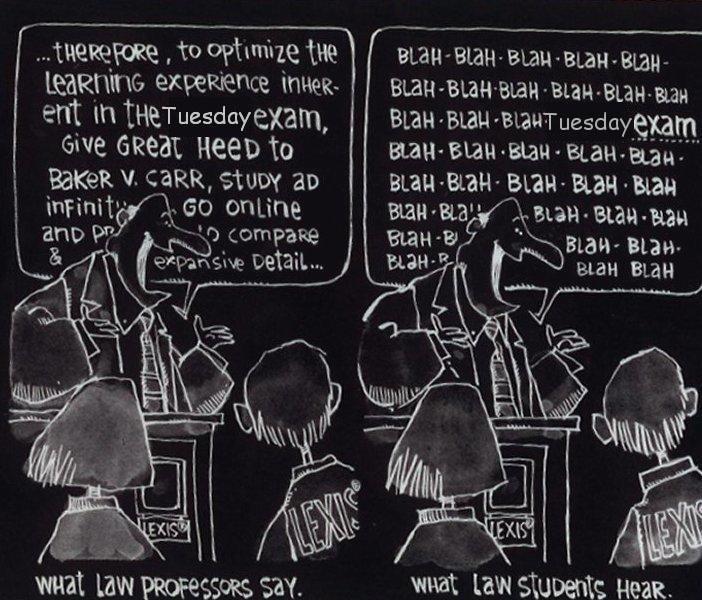 ...therefore, to optimize the
learning experience inher-
ent in the Tuesday exam,
give great heed to
Baker v. Carr, study ad
go online
and compare
&
expansive detail...
Blah-Blah-Blah-Blah-Blah-
Blah-Blah-Blah-Blah-Blah-Blah
Blah-Blah-Blah Tuesday exam
Blah-Blah-Blah-Blah-Blah-
Blah-Blah-Blah-Blah-Blah
Blah- Blah-Blah-Blah
Blah- Blah-Blah-
Blah- Blah Blah
LEXIS®
LEXIS
LEXIS®
LEXIS
What law professors say.
What law students hear.